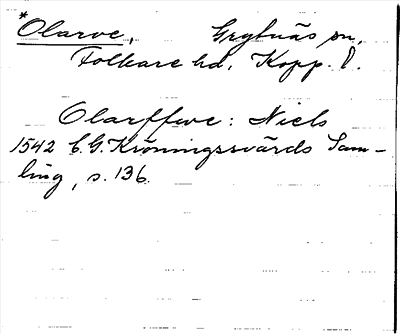 *Olarve, Grytnäs sn,
Folkare hd. Kopp. l.
Olarffwe: Niels
1542 C.G. Kröningssvärds Sam-
ling, s. 136.